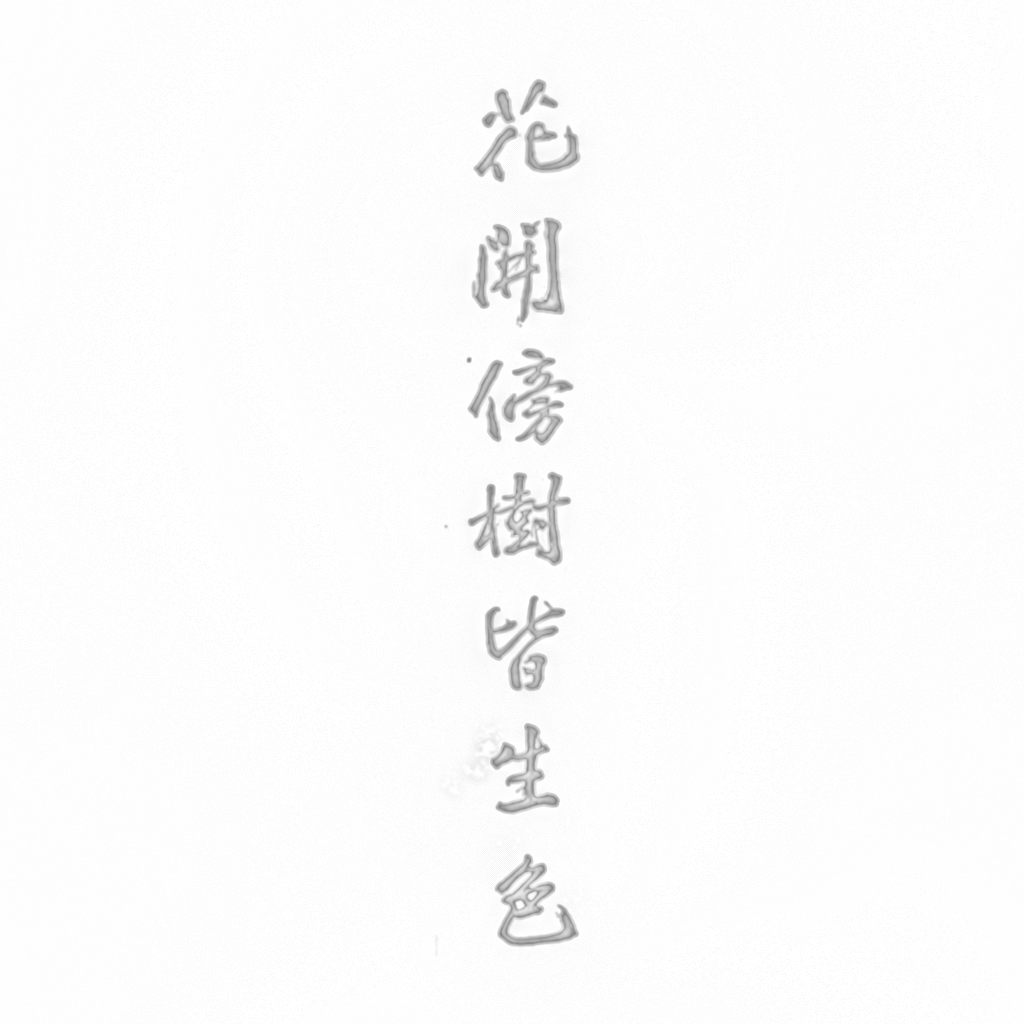 花開傍樹皆生色